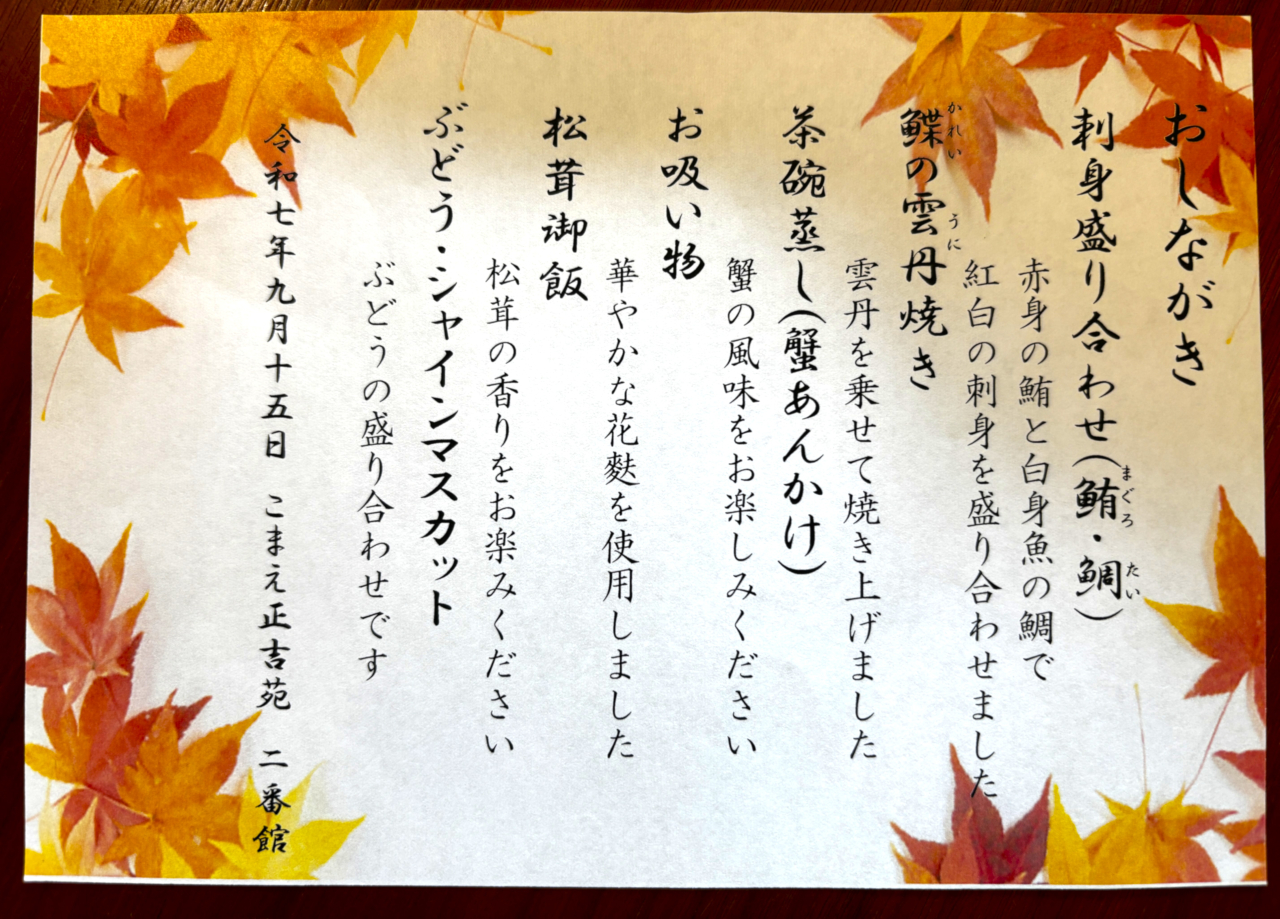 おしながき
刺身盛り合わせ(鮪・鯛)
まぐろ
たい
赤身の鮪と白身魚の鯛で
紅白の刺身を盛り合わせました
鰈の雲丹焼き
かれい
うに
雲丹を乗せて焼き上げました
茶碗蒸し(蟹あんかけ)
蟹の風味をお楽しみください
お吸い物
華やかな花麩を使用しました
松茸御飯
松茸の香りをお楽みください
ぶどう・シャインマスカット
ぶどうの盛り合わせです
令和七年九月十五日 こまえ正吉苑 二番館